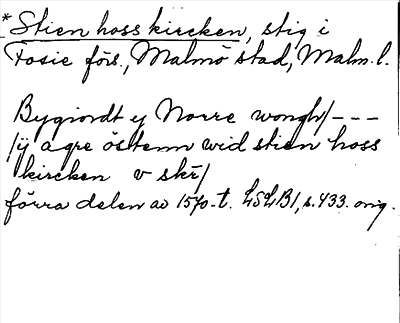 * Stien hoss kircken, stig i
Fosie förs., Malmö stad, Malm. l.
Bygiordt ij Norre wongh/ - - -
/ij agre östenn wid stien hoss
kircken v skr/
förra delen av 1570-t. LSLB1, s. 433. orig.